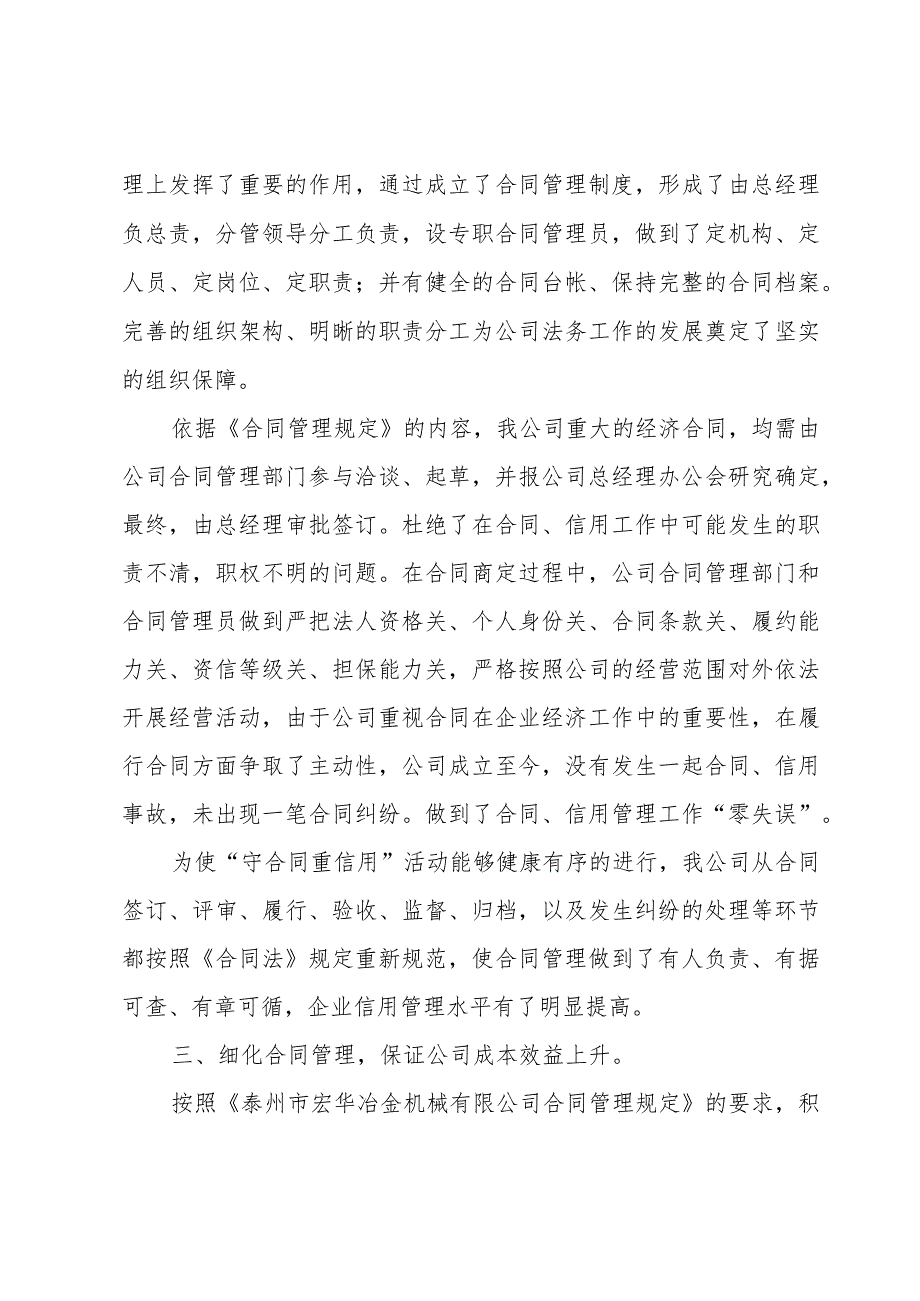 理上发挥了重要的作用，通过成立了合同管理制度，形成了由总经理
负总责，分管领导分工负责，设专职合同管理员，做到了定机构、定
人员、定岗位、定职责；并有健全的合同台帐、保持完整的合同档案。
完善的组织架构、明晰的职责分工为公司法务工作的发展奠定了坚实
的组织保障。
依据《合同管理规定》的内容，我公司重大的经济合同，均需由
公司合同管理部门参与洽谈、起草，并报公司总经理办公会研究确定，
最终，由总经理审批签订。杜绝了在合同、信用工作中可能发生的职
责不清，职权不明的问题。在合同商定过程中，公司合同管理部门和
合同管理员做到严把法人资格关、个人身份关、合同条款关、履约能
力关、资信等级关、担保能力关，严格按照公司的经营范围对外依法
开展经营活动，由于公司重视合同在企业经济工作中的重要性，在履
行合同方面争取了主动性，公司成立至今，没有发生一起合同、信用
事故，未出现一笔合同纠纷。做到了合同、信用管理工作“零失误”。
为使“守合同重信用”活动能够健康有序的进行，我公司从合同
签订、评审、履行、验收、监督、归档，以及发生纠纷的处理等环节
都按照《合同法》规定重新规范，使合同管理做到了有人负责、有据
可查、有章可循，企业信用管理水平有了明显提高。
三、细化合同管理，保证公司成本效益上升。
按照《泰州市宏华冶金机械有限公司合同管理规定》的要求，积